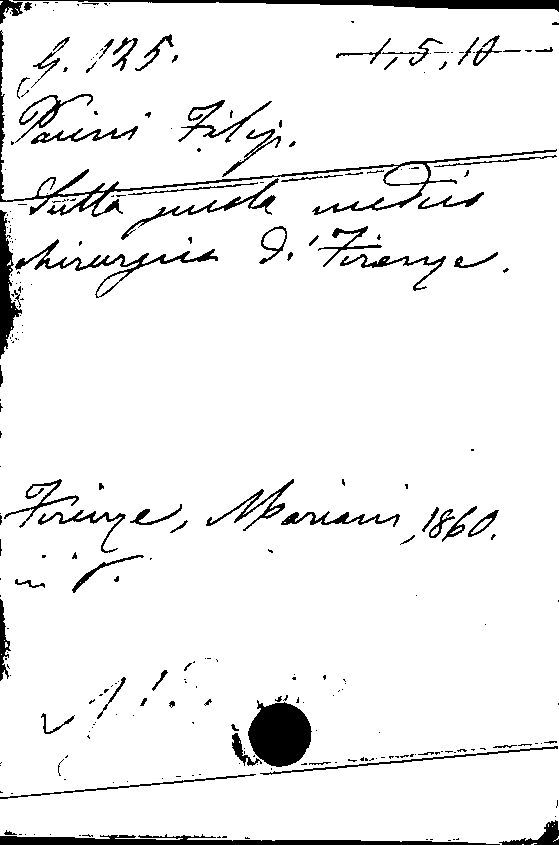 G. 125. 1, 5, 10
Pacini Filip.
Sulla scuola medico
chirurgica di Firenze.
Firenze, Mariani, 1860.
in 8.